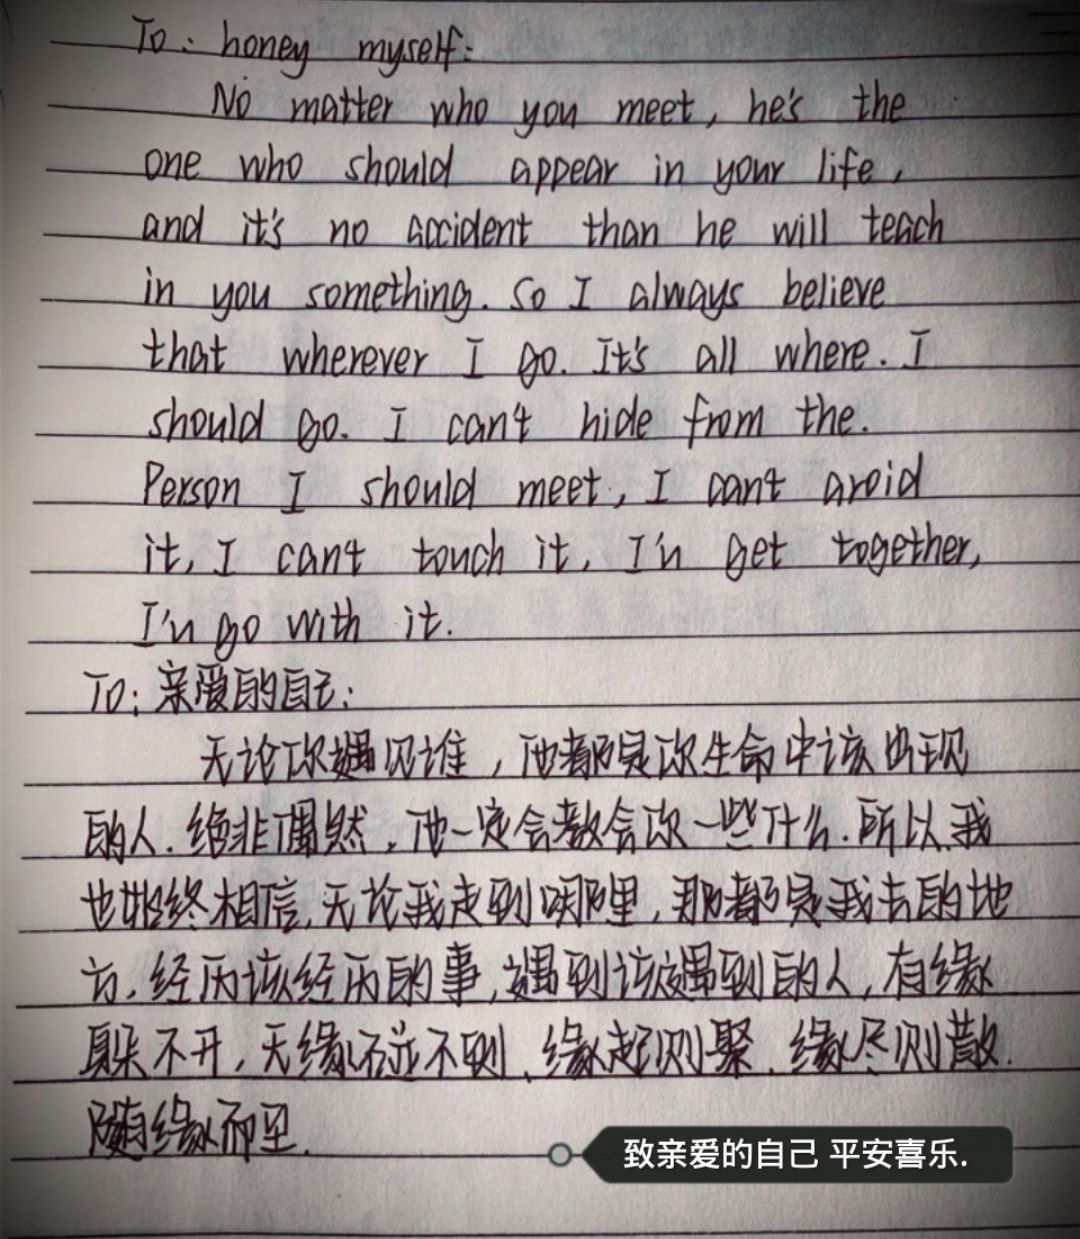 To: honey myself:
No matter who you meet, he's the
one who should appear in your life,
and it's no accident than he will teach
in you something. So I always believe
that wherever I go. It's all where. I
should go. I can't hide from the.
Person I should meet, I can't avoid
it, I can't touch it, I'll get together,
I'll go with it.
To: 亲爱的自己:
无论你遇见谁，他都是你生命中该出现
的人.绝非偶然，他一定会教会你一些什么.所以我
也始终相信,无论我走到哪里,那都是我去的地
方,经历该经历的事,遇到该遇到的人,有缘
躲不开,无缘碰不到,缘起则聚,缘尽则散.
随缘而里.
致亲爱的自己 平安喜乐.